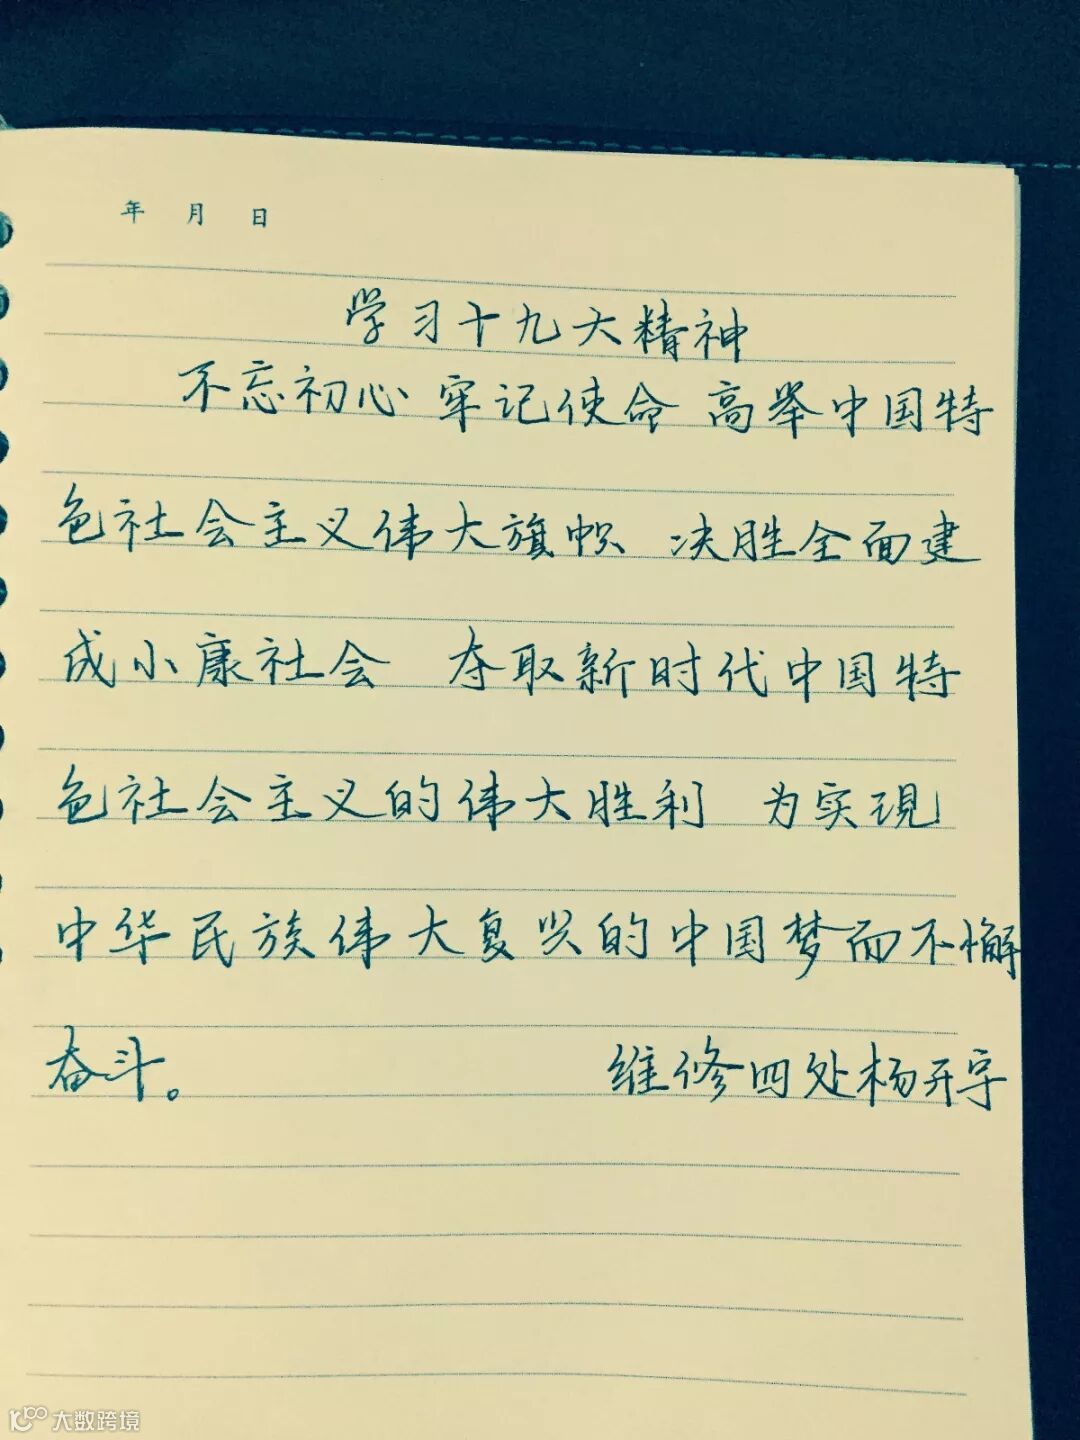 年 月 日
学习十九大精神
不忘初心 牢记使命 高举中国特
色社会主义伟大旗帜 决胜全面建
成小康社会 夺取新时代中国特
色社会主义的伟大胜利 为实现
中华民族伟大复兴的中国梦而不懈
奋斗。 维修四处杨开宇
大数跨境